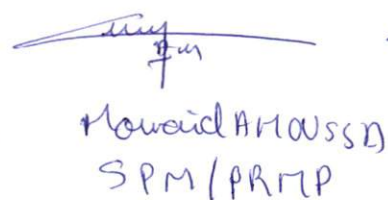 Mowaid AMOUSSD
SPM/PRMP